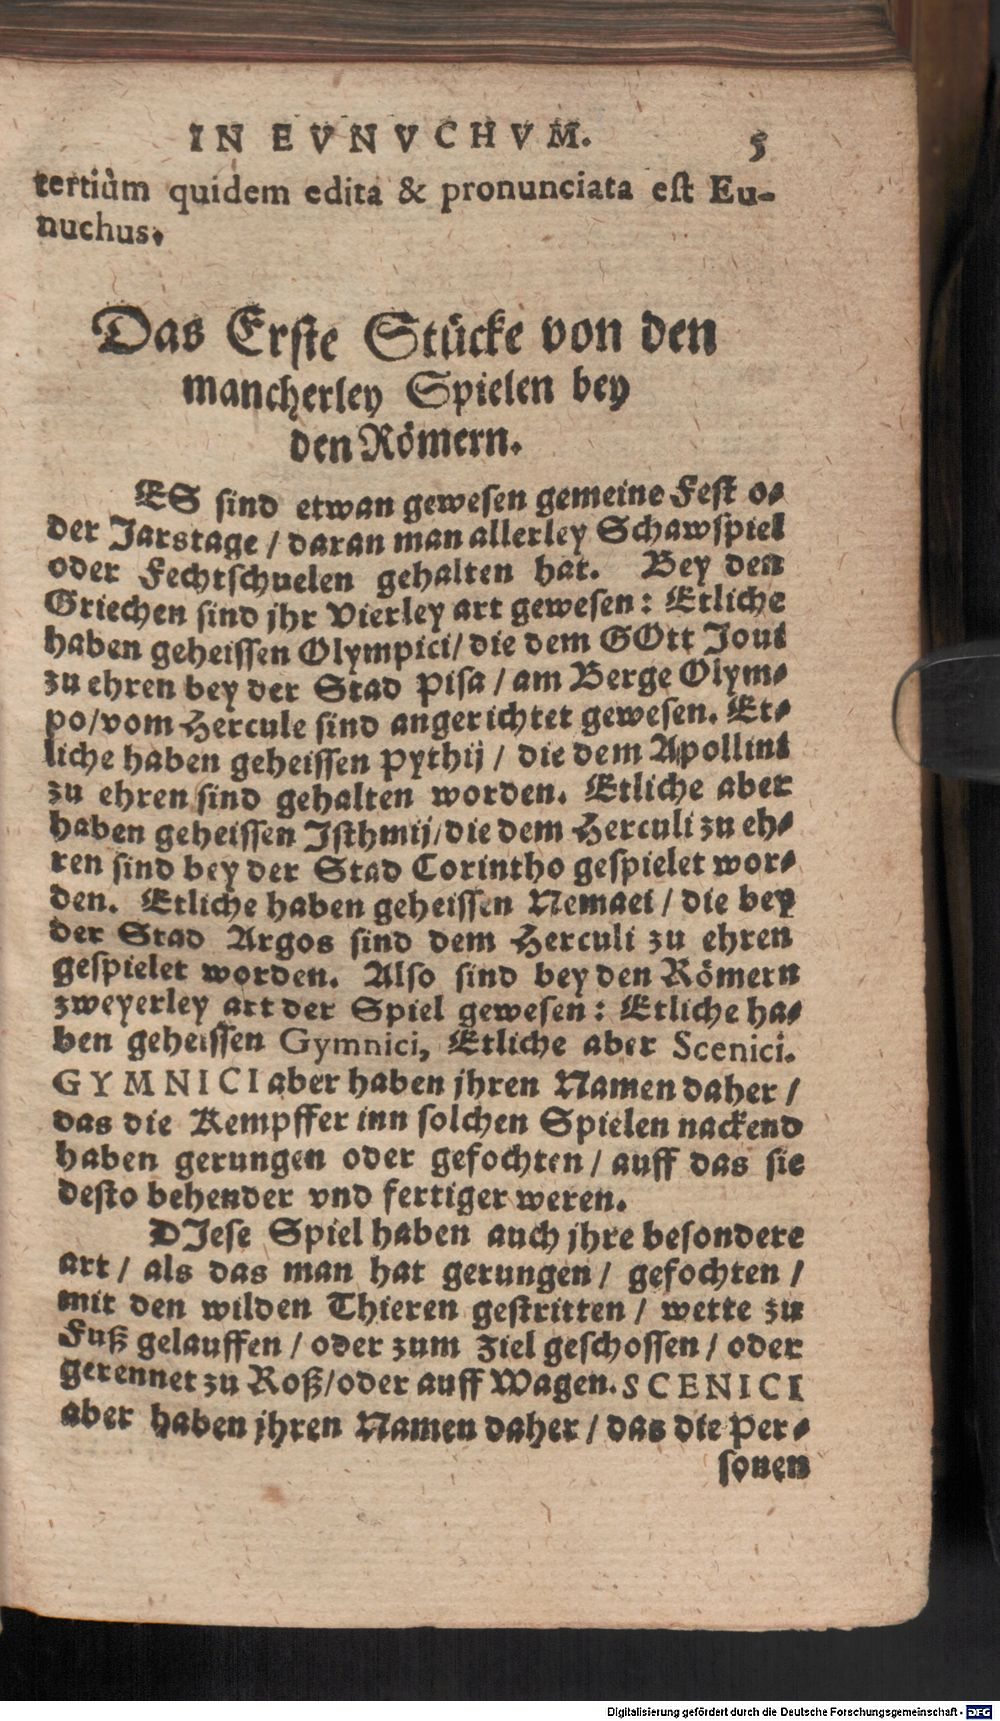 IN EVNVCHVM. 5
tertiùm quidem edita & pronunciata est Eu-
nuchus.
Das Erste Stücke von den
mancherley Spielen bey
den Römern.
ES sind etwan gewesen gemeine Fest o-
der Jarstage / daran man allerley Schawspiel
oder Fechtschuelen gehalten hat. Bey den
Griechen sind jhr vierley art gewesen: Etliche
haben geheissen Olympici / die dem GOtt Joui
zu ehren bey der Stad Pisa / am Berge Olym-
po / vom Hercule sind angerichtet gewesen. Et-
liche haben geheissen Pythij / die dem Apollini
zu ehren sind gehalten worden. Etliche aber
haben geheissen Isthmij / die dem Herculi zu eh-
ren sind bey der Stad Corintho gespielet wor-
den. Etliche haben geheissen Nemaei / die bey
der Stad Argos sind dem Herculi zu ehren
gespielet worden. Also sind bey den Römern
zweyerley art der Spiel gewesen: Etliche ha-
ben geheissen Gymnici, Etliche aber Scenici.
GYMNICI aber haben jhren Namen daher /
das die Kempffer inn solchen Spielen nackend
haben gerungen oder gefochten / auff das sie
desto behender vnd fertiger weren.
DJese Spiel haben auch jhre besondere
art / als das man hat gerungen / gefochten /
mit den wilden Thieren gestritten / wette zu
Fuß gelauffen / oder zum Ziel geschossen / oder
gerennet zu Roß / oder auff Wagen. SCENICI
aber haben jhren Namen daher / das die Per-
sonen
Digitalisierung gefördert durch die Deutsche Forschungsgemeinschaft - DFG